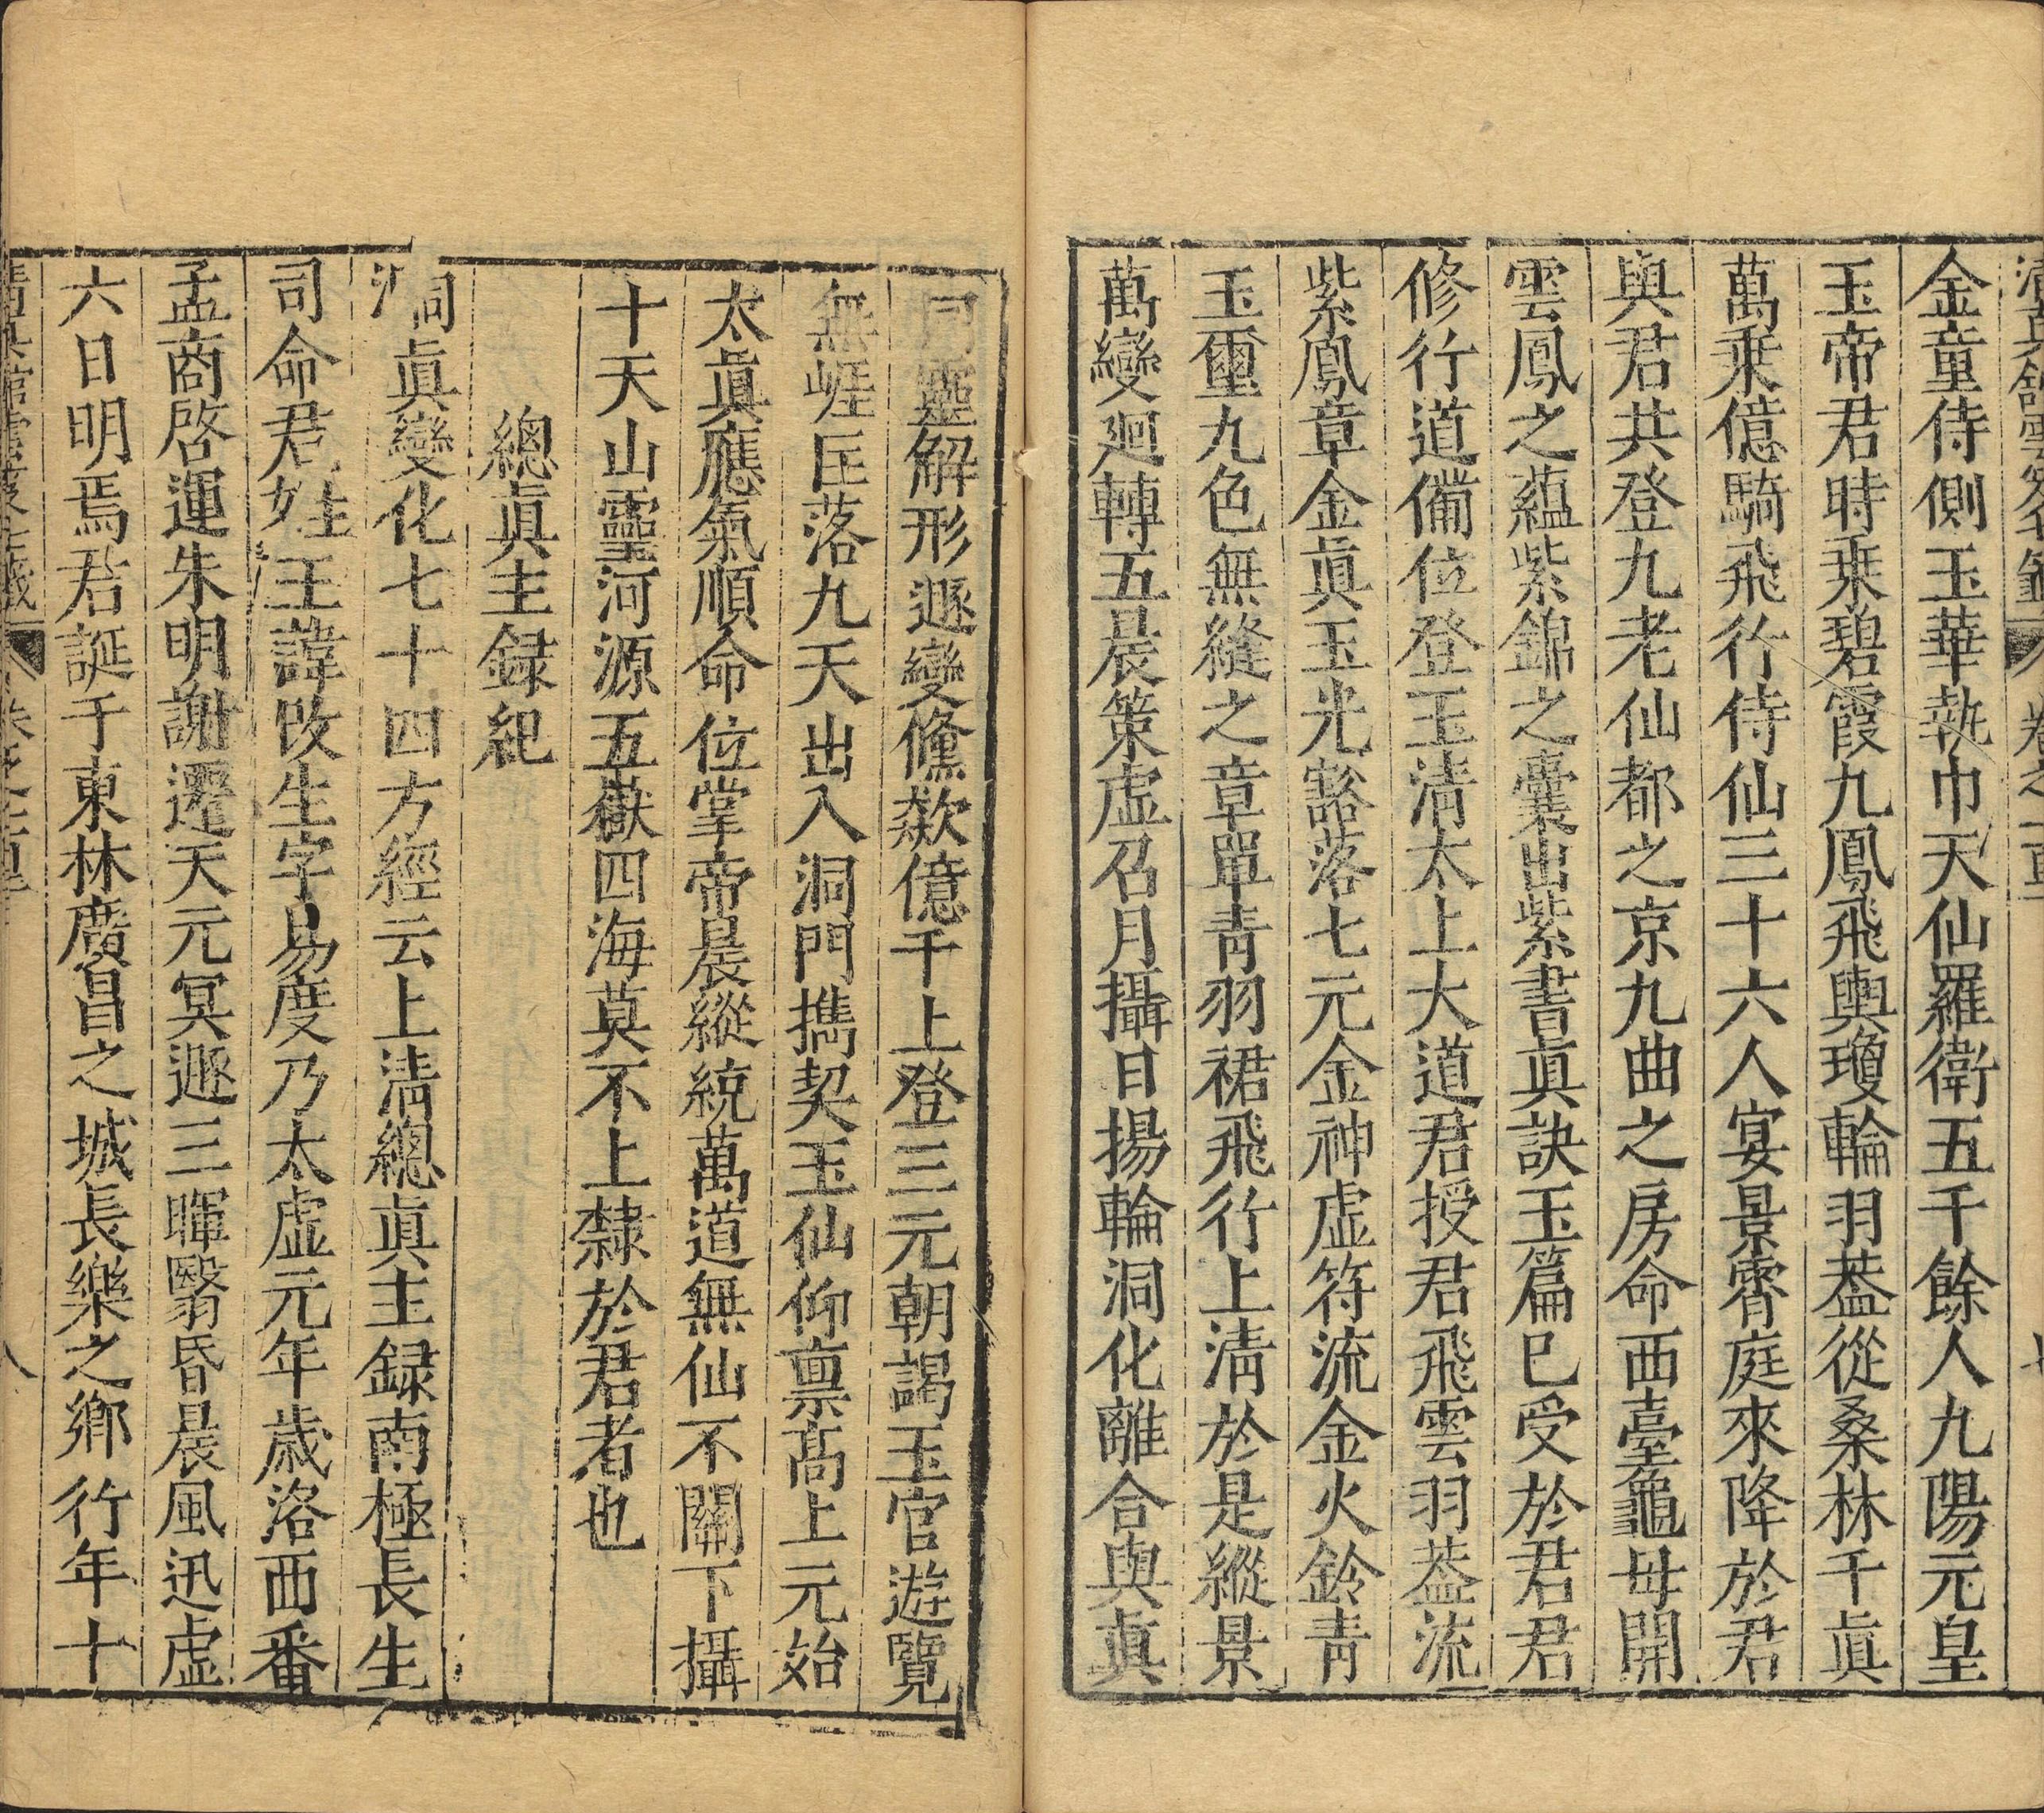 清真館雲笈七籤 卷之一百一 七
金童侍側玉華執巾天仙羅衛五千餘人九陽元皇
玉帝君時乗碧霞九鳳飛輿瓊輪羽葢從桑林千眞
萬乗億騎飛行侍仙三十六人宴景霄庭來降於君
與君共登九老仙都之京九曲之房命西臺龜母開
雲鳳之蘊紫錦之囊出紫書眞訣玉篇巳受於君君
修行道備位登玉清太上大道君授君飛雲羽葢流
紫鳳章金眞玉光豁落七元金神虚符流金火鈴青
玉璽九色無縫之章單青羽裙飛行上清於是縱景
萬變廻轉五晨策虚召月攝日揚輪洞化離合與眞
同靈解形遯變儵欻億千上登三元朝謁玉官遊覽
無崕匡落九天出入洞門擕契玉仙仰禀髙上元始
太眞應氣順命位掌帝晨縱統萬道無仙不關下攝
十天山靈河源五嶽四海莫不上隸於君者也
總眞主録紀
洞眞變化七十四方經云上清總眞主録南極長生
司命君姓王諱改生字易度乃太虚元年歳洛西番
孟商啓運朱明謝遷天元冥遯三暉翳昏晨風迅虚
六日明焉君誕于東林廣昌之城長樂之鄉行年十
清真館雲笈七籤 卷之一百一 八